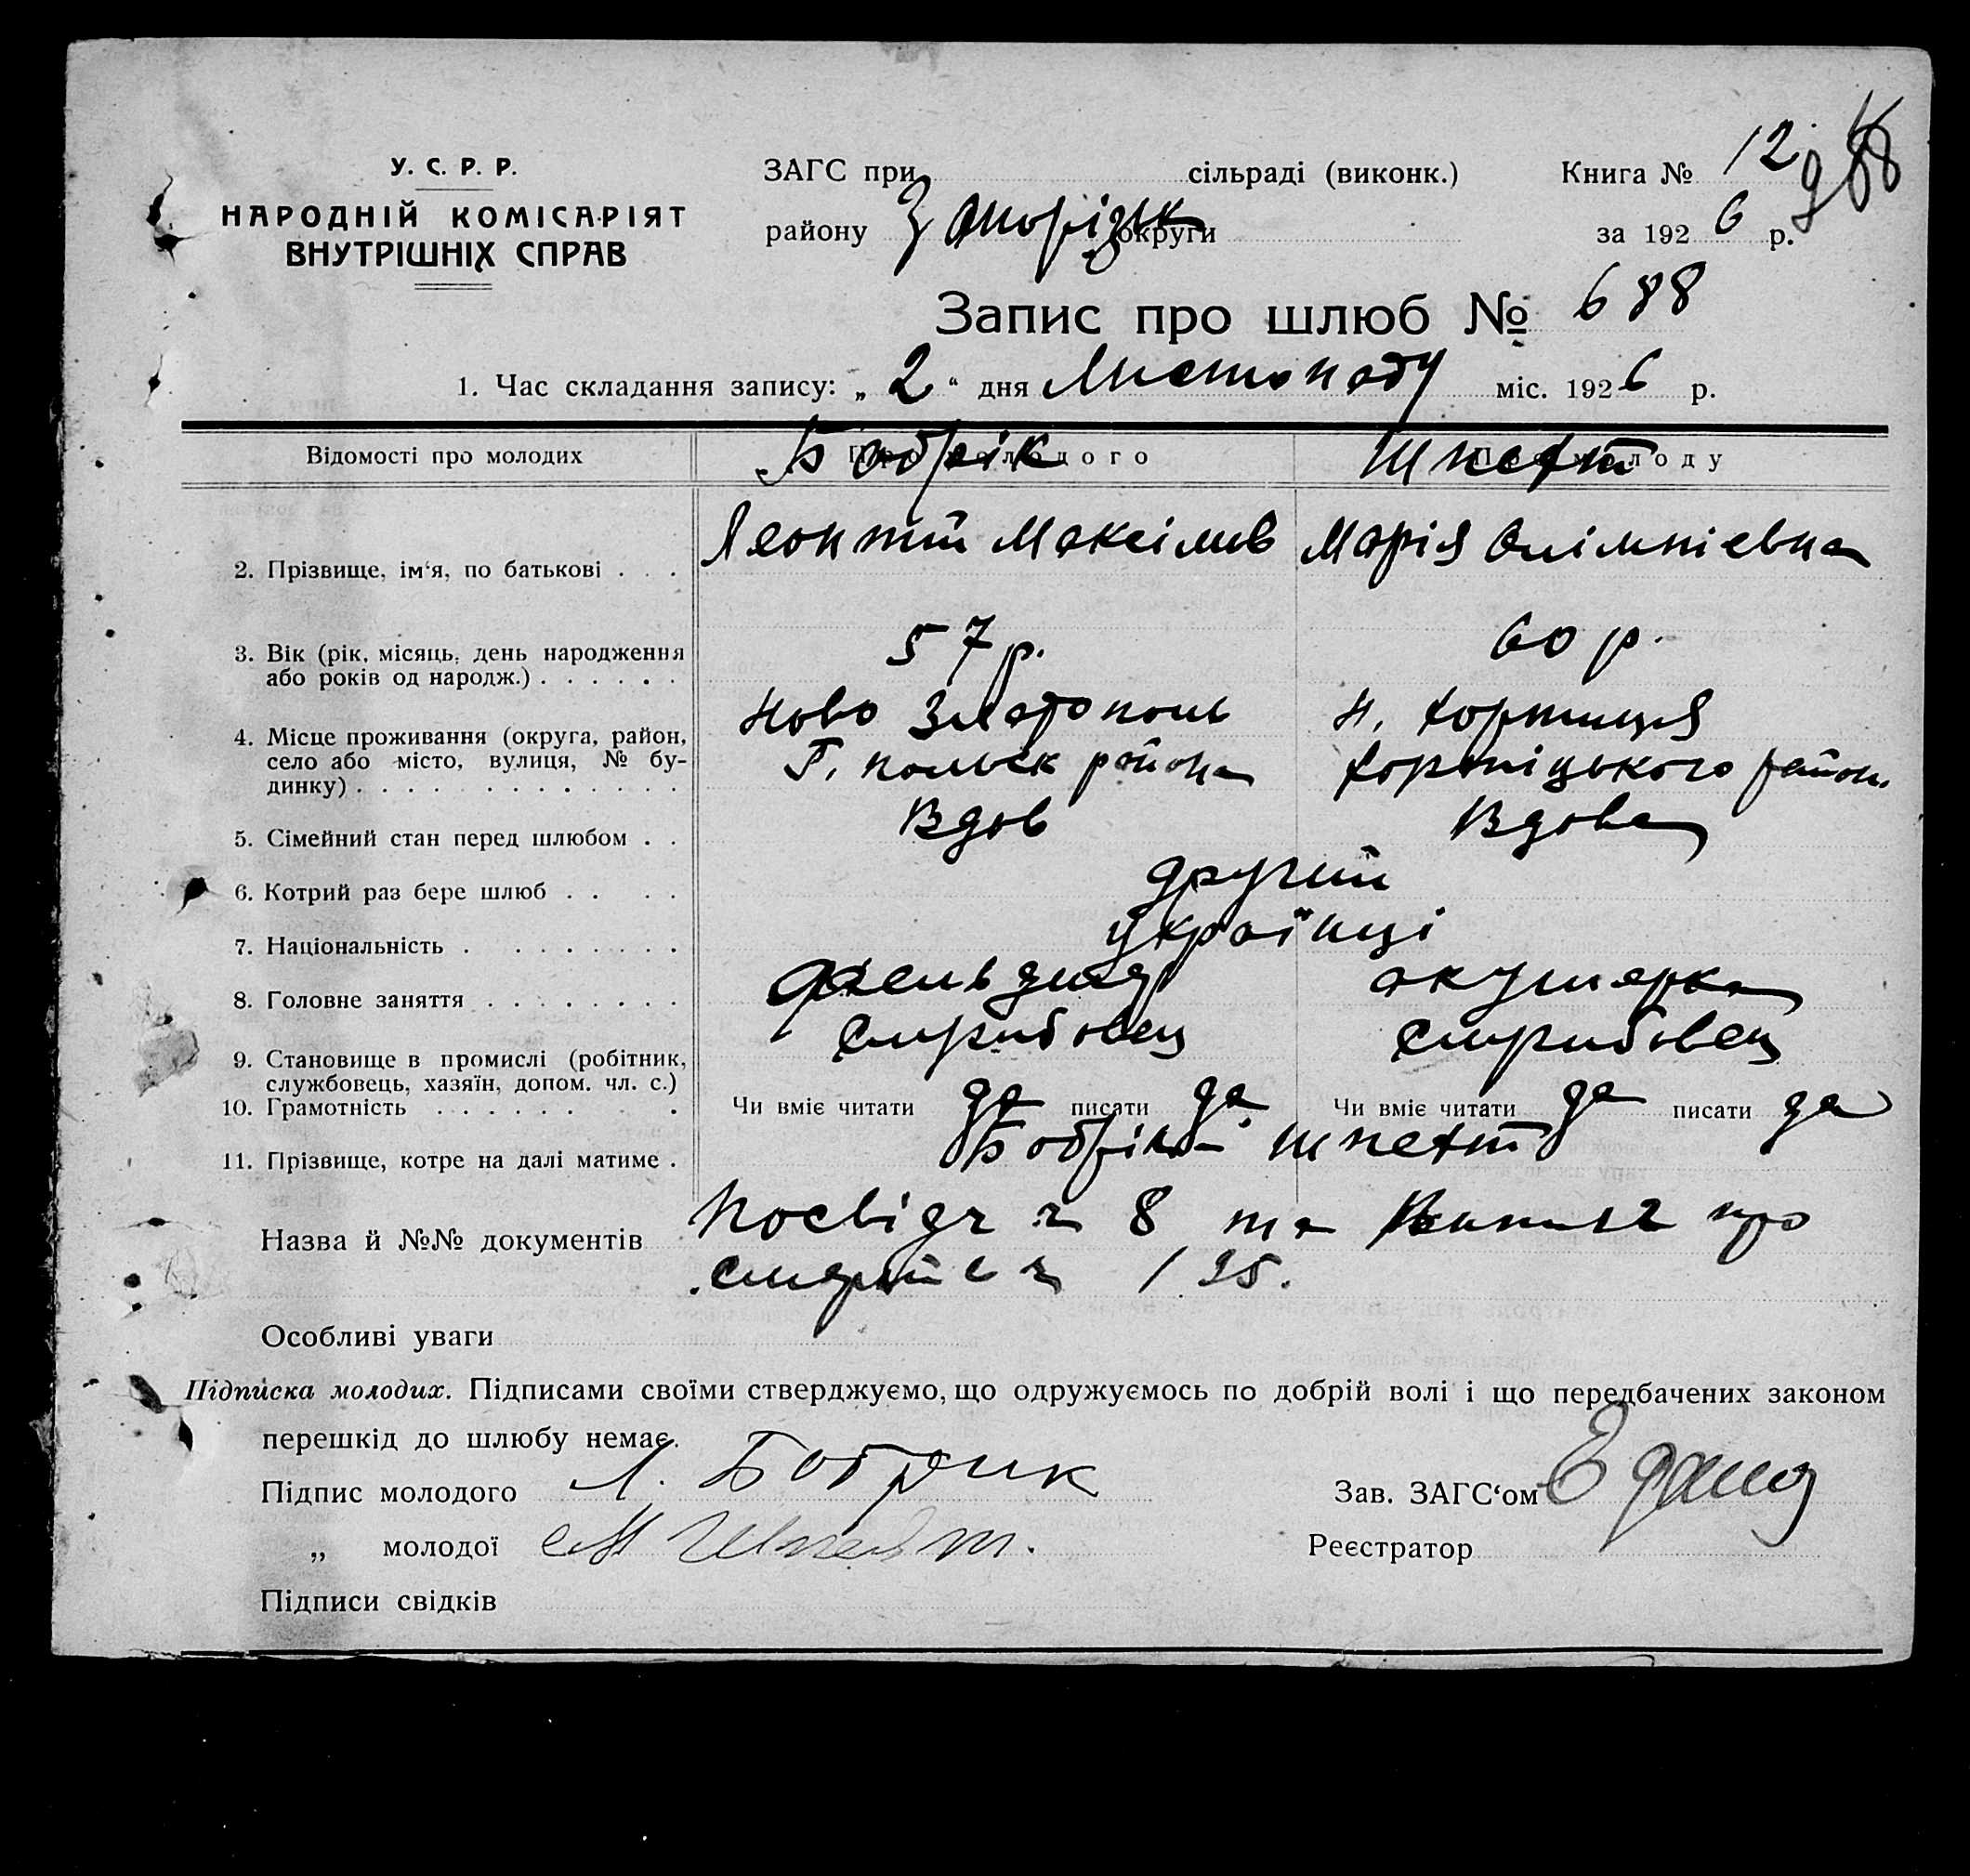 У. С. Р. Р.
НАРОДНІЙ КОМІСАРІЯТ
ВНУТРІШНІХ СПРАВ
ЗАГС при сільраді (виконк.)
району Запоріжж округи
Книга № 12
за 1926 р.
Запис про шлюб № 688
1. Час складання запису: „ 2 “ дня Листопаду міс. 1926 р.
Відомості про молодих Про молодого Про молоду
Бобрік Шпехт
2. Прізвище, ім‘я, по батькові . . . Леонтій Максімив Марія Олімпіевна
3. Вік (рік, місяць, день народження
або років од народж.) . . . . . . 57 р. 60 р.
4. Місце проживання (округа, район,
село або місто, вулиця, № бу-
динку) . . . . . . . . . . . . .
Ново Златополь Н. Хортиця
Г. польск района Хортіцького район.
5. Сімейний стан перед шлюбом . . Вдов Вдова
6. Котрий раз бере шлюб . . . . другий
7. Національність . . . . . . . . українці
8. Головне заняття . . . . . . . . акушерка
9. Становище в промислі (робітник,
службовець, хазяїн, допом. чл. с.)
10. Грамотність . . . . . . . . Чи вміє читати да писати да Чи вміє читати да писати да
11. Прізвище, котре на далі матиме . Бобрік Шпехт
Назва й №№ документів Посвідч 8 та про
125.
Особливі уваги
Підписка молодих. Підписами своїми стверджуємо, що одружуємось по добрій волі і що передбачених законом
перешкід до шлюбу немає.
Підпис молодого Л. Бобрик
Зав. ЗАГС‘ом
„ молодої М Шпехт.
Реєстратор
Підписи свідків